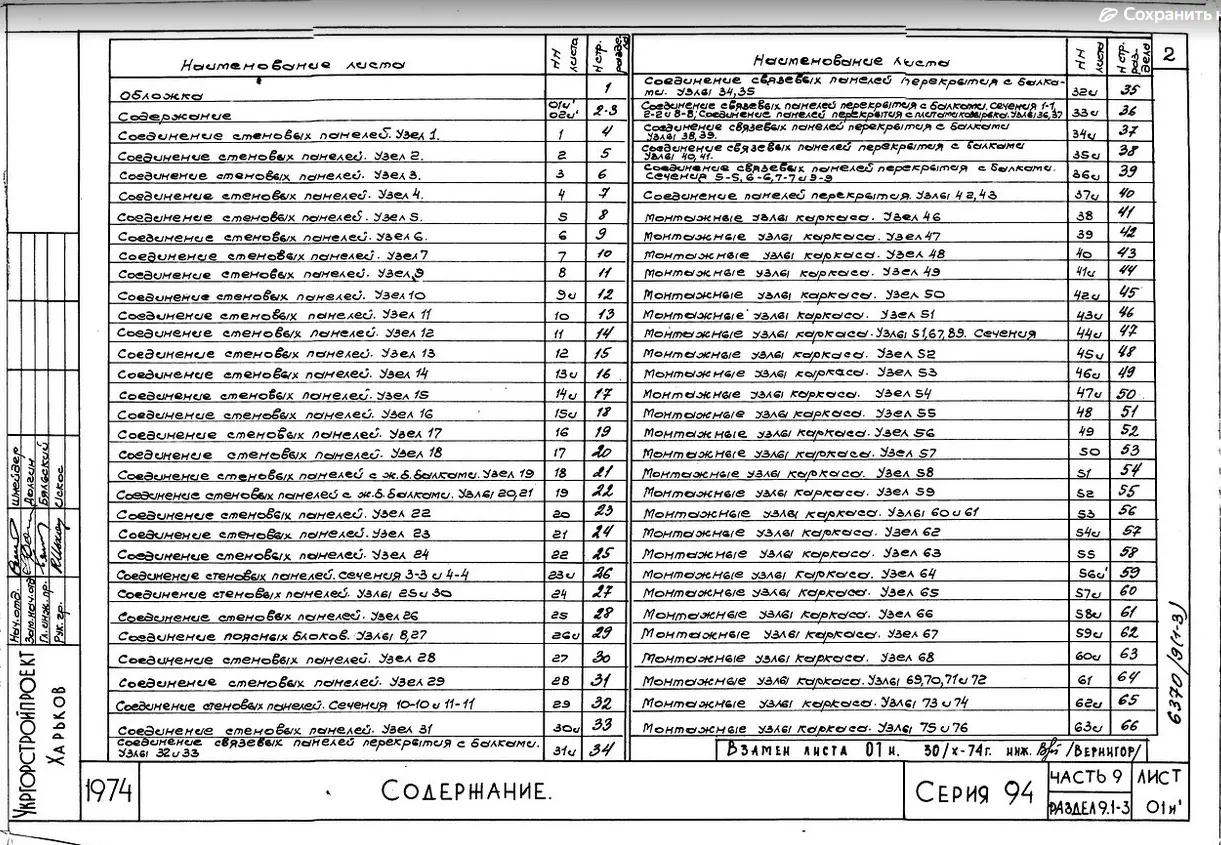 Сохранить
2
Наименование листа
NN листа
N стр. раздела
Обложка 1
Содержание 01и' 02и' 2-3
Соединение стеновых панелей. Узел 1. 1 4
Соединение стеновых панелей. Узел 2. 2 5
Соединение стеновых панелей. Узел 3. 3 6
Соединение стеновых панелей. Узел 4. 4 7
Соединение стеновых панелей. Узел 5. 5 8
Соединение стеновых панелей. Узел 6. 6 9
Соединение стеновых панелей. Узел 7 7 10
Соединение стеновых панелей. Узел 9 8 11
Соединение стеновых панелей. Узел 10 9и 12
Соединение стеновых панелей. Узел 11 10 13
Соединение стеновых панелей. Узел 12 11 14
Соединение стеновых панелей. Узел 13 12 15
Соединение стеновых панелей. Узел 14 13и 16
Соединение стеновых панелей. Узел 15 14и 17
Соединение стеновых панелей. Узел 16 15и 18
Соединение стеновых панелей. Узел 17 16 19
Соединение стеновых панелей. Узел 18 17 20
Соединение стеновых панелей с ж.б. балками. Узел 19 18 21
Соединение стеновых панелей с ж.б. балками. Узлы 20,21 19 22
Соединение стеновых панелей. Узел 22 20 23
Соединение стеновых панелей. Узел 23 21 24
Соединение стеновых панелей. Узел 24 22 25
Соединение стеновых панелей. Сечения 3-3 и 4-4 23и 26
Соединение стеновых панелей. Узлы 25 и 30 24 27
Соединение стеновых панелей. Узел 26 25 28
Соединение поясных блоков. Узлы 8,27 26и 29
Соединение стеновых панелей. Узел 28 27 30
Соединение стеновых панелей. Узел 29 28 31
Соединение стеновых панелей. Сечения 10-10 и 11-11 29 32
Соединение стеновых панелей. Узел 31 30и 33
Соединение связевых панелей перекрытия с балками.
Узлы 32 и 33 31и 34
Наименование листа
NN листа
N стр. раздела
Соединение связевых панелей перекрытия с балка-
ми. Узлы 34,35 32и 35
Соединение связевых панелей перекрытия с балками. Сечения 1-1,
2-2 и 8-8; Соединение панелей перекрытия с плитами козырька. Узлы 36,37 33и 36
Соединение связевых панелей перекрытия с балками
Узлы 38,39. 34и 37
Соединение связевых панелей перекрытия с балками
Узлы 40,41. 35и 38
Соединение связевых панелей перекрытия с балками.
Сечения 5-5, 6-6, 7-7 и 9-9 36и 39
Соединение панелей перекрытия. Узлы 42,43 37и 40
Монтажные узлы каркаса. Узел 46 38 41
Монтажные узлы каркаса. Узел 47 39 42
Монтажные узлы каркаса. Узел 48 40 43
Монтажные узлы каркаса. Узел 49 41и 44
Монтажные узлы каркаса. Узел 50 42и 45
Монтажные узлы каркаса. Узел 51 43и 46
Монтажные узлы каркаса. Узлы 51,67,89. Сечения 44и 47
Монтажные узлы каркаса. Узел 52 45и 48
Монтажные узлы каркаса. Узел 53 46и 49
Монтажные узлы каркаса. Узел 54 47и 50
Монтажные узлы каркаса. Узел 55 48 51
Монтажные узлы каркаса. Узел 56 49 52
Монтажные узлы каркаса. Узел 57 50 53
Монтажные узлы каркаса. Узел 58 51 54
Монтажные узлы каркаса. Узел 59 52 55
Монтажные узлы каркаса. Узлы 60 и 61 53 56
Монтажные узлы каркаса. Узел 62 54и 57
Монтажные узлы каркаса. Узел 63 55 58
Монтажные узлы каркаса. Узел 64 56и' 59
Монтажные узлы каркаса. Узел 65 57и 60
Монтажные узлы каркаса. Узел 66 58и 61
Монтажные узлы каркаса. Узел 67 59и 62
Монтажные узлы каркаса. Узел 68 60и 63
Монтажные узлы каркаса. Узлы 69,70,71 и 72 61 64
Монтажные узлы каркаса. Узлы 73 и 74 62и 65
Монтажные узлы каркаса. Узлы 75 и 76 63и 66
Взамен листа 01и. 30/X-74г. инж. /Вернигор/
6370/9(1-3)
Нач. отд. Шнейдер
Зам. нач. отд. Долгин
Гл. инж. пр. Бяльский
Рук. гр. Искос
Укргорстройпроект
Харьков
1974
Содержание.
Серия 94
Часть 9
Раздел 9.1-3
Лист
01и'